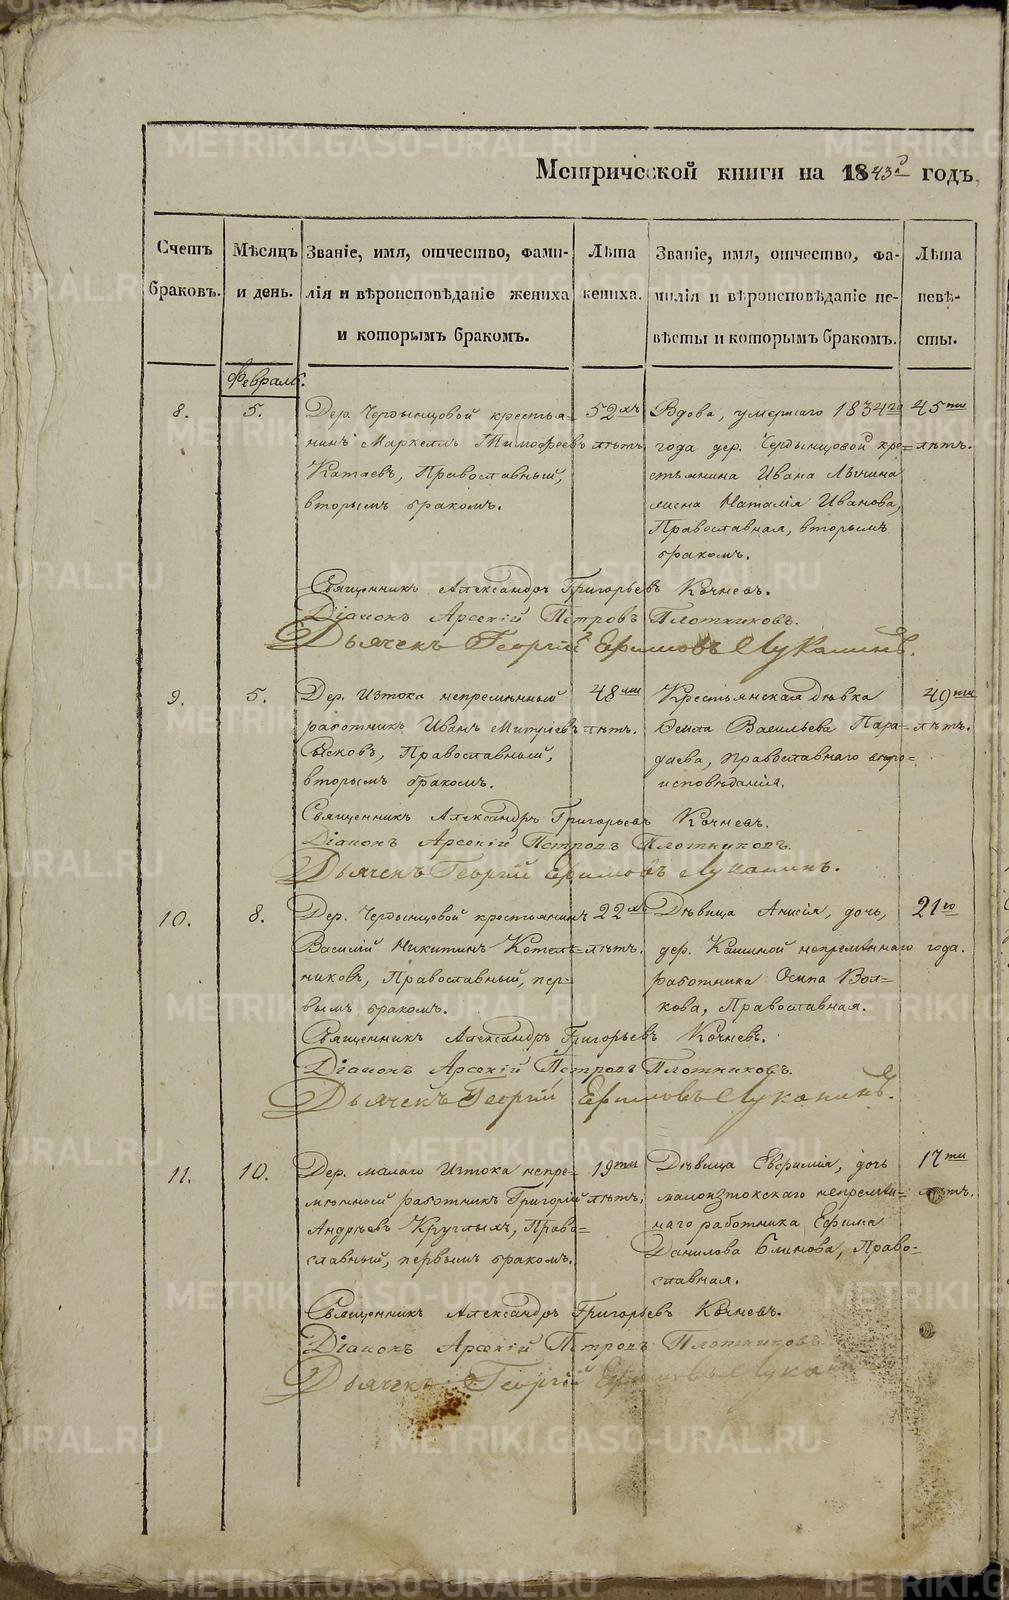 Метрической книги на 1843й годъ.
Счетъ браковъ.
Мѣсяцъ и день.
Званіе, имя, отчество, фами-
лія и вѣроисповѣданіе жениха
и которымъ бракомъ.
Лѣта жениха.
Званіе, имя, отчество, фа-
милія и вѣроисповѣданіе не-
вѣсты и которымъ бракомъ.
Лѣта невѣ-
сты.
Февраль.
8.
5.
Дер. Чердынцовой крестья-
нинъ Маркеллъ Тимофеевъ
Катаевъ, Православный,
вторымъ бракомъ.
52хъ
лѣтъ
Вдова, умершаго 1834го
года дер. Чердынцовой кре-
стьянина Ивана
жена Наталія Иванова,
Православная, вторымъ
бракомъ.
45ти
лѣтъ.
Священникъ Александръ Григорьевъ Кочневъ.
Діаконъ Арсеній Петровъ Плотниковъ.
Дьячекъ Георгій Ефимовъ Луканинъ.
9.
5.
Дер. Изтока непремѣнный
работникъ Иванъ
Сысковъ, Православный,
вторымъ бракомъ.
48ми
лѣтъ.
Крестьянская дѣвка
Васильева Пара-
Православнаго вѣро-
исповѣданія.
40ти
лѣтъ.
Священникъ Александръ Григорьевъ Кочневъ.
Діаконъ Арсеній Петровъ Плотниковъ.
Дьячекъ Георгій Ефимовъ Луканинъ.
10.
8.
Дер. Чердынцовой крестьянинъ
Василій Никитинъ Котель-
никовъ, Православный, пер-
вымъ бракомъ.
22хъ
лѣтъ.
Дѣвица Анисія, дочь,
дер. Кашиной непремѣннаго
работника Осипа Вол-
кова, Православная.
21го
года.
Священникъ Александръ Григорьевъ Кочневъ.
Діаконъ Арсеній Петровъ Плотниковъ.
Дьячекъ Георгій Ефимовъ Луканинъ.
11.
10.
Дер. малаго Изтока непре-
мѣнный работникъ Григорій
Андреевъ Круглыхъ, Право-
славный, первымъ бракомъ.
19ти
лѣтъ.
Дѣвица Евфимія, дочь
малоизтокскаго непремѣн-
наго работника Ефима
Данилова Блинова, Право-
славная.
17ти
лѣтъ.
Священникъ Александръ Григорьевъ Кочневъ.
Діаконъ Арсеній Петровъ Плотниковъ.
Дьячекъ Георгій Ефимовъ
METRIKI.GASO-URAL.RU